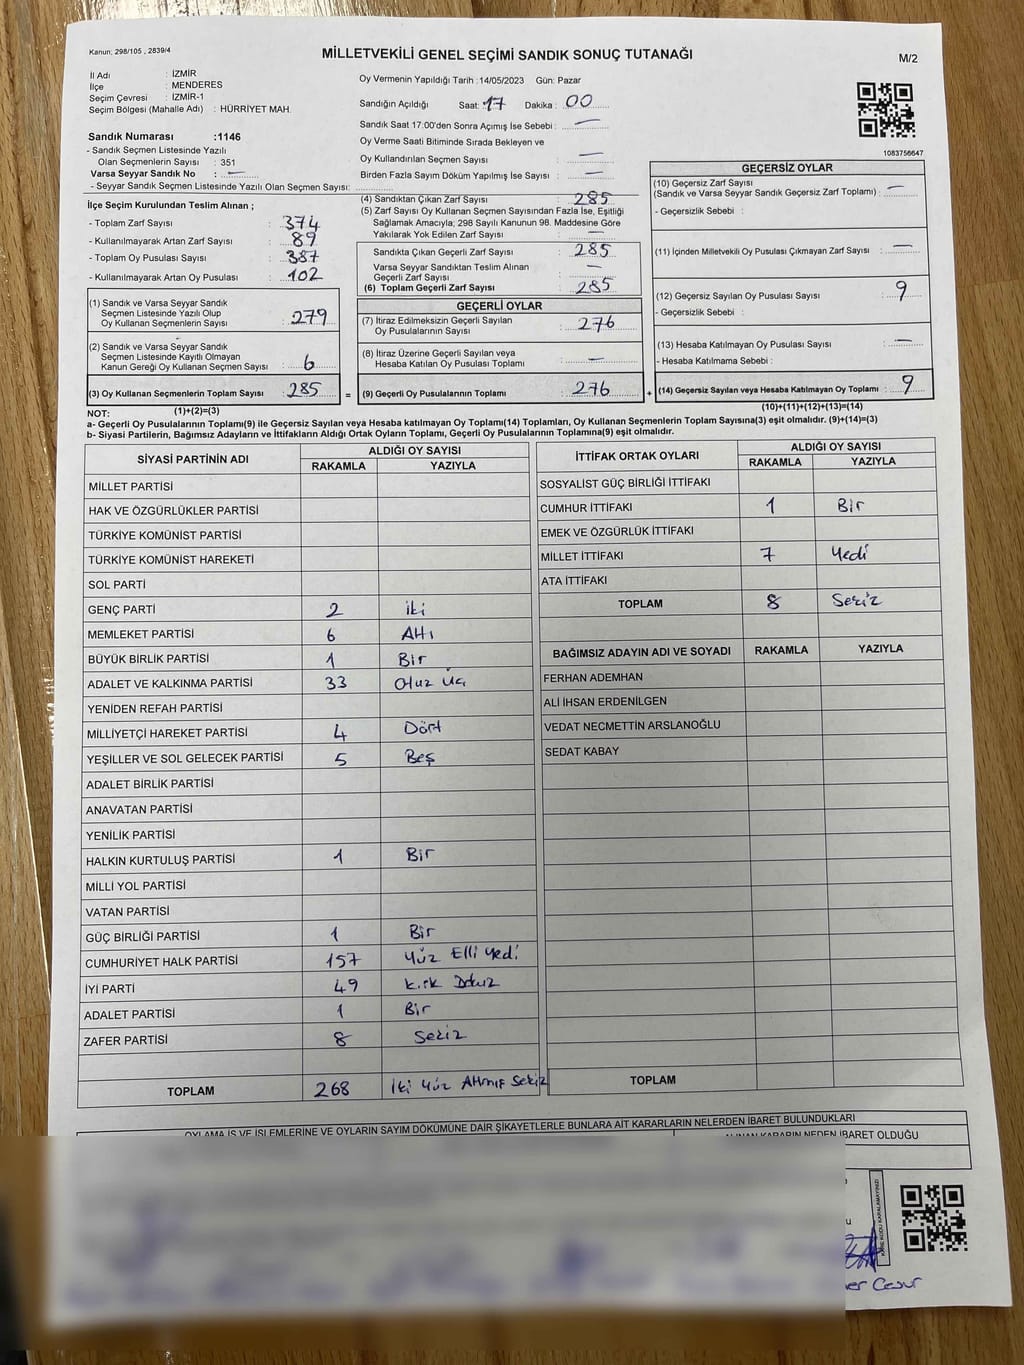 Kanun; 298/105 , 2839/4
MİLLETVEKİLİ GENEL SEÇİMİ SANDIK SONUÇ TUTANAĞI
M/2
İl Adı : İZMİR
İlçe : MENDERES
Seçim Çevresi : İZMİR-1
Seçim Bölgesi (Mahalle Adı) : HÜRRİYET MAH.
Oy Vermenin Yapıldığı Tarih : 14/05/2023 Gün: Pazar
Sandığın Açıldığı Saat: 17 Dakika : 00
Sandık Saat 17:00'den Sonra Açımış İse Sebebi : —
Oy Verme Saati Bitiminde Sırada Bekleyen ve
Oy Kullandırılan Seçmen Sayısı : —
Birden Fazla Sayım Döküm Yapılmış İse Sayısı : —
1083756647
Sandık Numarası :1146
- Sandık Seçmen Listesinde Yazılı
Olan Seçmenlerin Sayısı : 351
Varsa Seyyar Sandık No : —
- Seyyar Sandık Seçmen Listesinde Yazılı Olan Seçmen Sayısı:
İlçe Seçim Kurulundan Teslim Alınan ;
- Toplam Zarf Sayısı : 374
- Kullanılmayarak Artan Zarf Sayısı : 89
- Toplam Oy Pusulası Sayısı : 387
- Kullanılmayarak Artan Oy Pusulası : 102
(1) Sandık ve Varsa Seyyar Sandık
Seçmen Listesinde Yazılı Olup
Oy Kullanan Seçmenlerin Sayısı : 279
(2) Sandık ve Varsa Seyyar Sandık
Seçmen Listesinde Kayıtlı Olmayan
Kanun Gereği Oy Kullanan Seçmen Sayısı : 6
(3) Oy Kullanan Seçmenlerin Toplam Sayısı : 285 =
(1)+(2)=(3)
(4) Sandıktan Çıkan Zarf Sayısı : 285
(5) Zarf Sayısı Oy Kullanan Seçmen Sayısından Fazla İse, Eşitliği
Sağlamak Amacıyla; 298 Sayılı Kanunun 98. Maddesine Göre
Yakılarak Yok Edilen Zarf Sayısı : —
Sandıkta Çıkan Geçerli Zarf Sayısı : 285
Varsa Seyyar Sandıktan Teslim Alınan
Geçerli Zarf Sayısı : —
(6) Toplam Geçerli Zarf Sayısı : 285
GEÇERLİ OYLAR
(7) İtiraz Edilmeksizin Geçerli Sayılan
Oy Pusulalarının Sayısı : 276
(8) İtiraz Üzerine Geçerli Sayılan veya
Hesaba Katılan Oy Pusulası Toplamı : —
(9) Geçerli Oy Pusulalarının Toplamı : 276 +
GEÇERSİZ OYLAR
(10) Geçersiz Zarf Sayısı
(Sandık ve Varsa Seyyar Sandık Geçersiz Zarf Toplamı) : —
- Geçersizlik Sebebi :
(11) İçinden Milletvekili Oy Pusulası Çıkmayan Zarf Sayısı : —
(12) Geçersiz Sayılan Oy Pusulası Sayısı : 9
- Geçersizlik Sebebi :
(13) Hesaba Katılmayan Oy Pusulası Sayısı : —
- Hesaba Katılmama Sebebi :
(14) Geçersiz Sayılan veya Hesaba Katılmayan Oy Toplamı : 9
(10)+(11)+(12)+(13)=(14)
NOT:
a- Geçerli Oy Pusulalarının Toplamı(9) ile Geçersiz Sayılan veya Hesaba katılmayan Oy Toplamı(14) Toplamları, Oy Kullanan Seçmenlerin Toplam Sayısına(3) eşit olmalıdır. (9)+(14)=(3)
b- Siyasi Partilerin, Bağımsız Adayların ve İttifakların Aldığı Ortak Oyların Toplamı, Geçerli Oy Pusulalarının Toplamına(9) eşit olmalıdır.
SİYASİ PARTİNİN ADI ALDIĞI OY SAYISI
RAKAMLA YAZIYLA
MİLLET PARTİSİ
HAK VE ÖZGÜRLÜKLER PARTİSİ
TÜRKİYE KOMÜNİST PARTİSİ
TÜRKİYE KOMÜNİST HAREKETİ
SOL PARTİ
GENÇ PARTİ 2 iki
MEMLEKET PARTİSİ 6 Altı
BÜYÜK BİRLİK PARTİSİ 1 Bir
ADALET VE KALKINMA PARTİSİ 33 Otuz Üç
YENİDEN REFAH PARTİSİ
MİLLİYETÇİ HAREKET PARTİSİ 4 Dört
YEŞİLLER VE SOL GELECEK PARTİSİ 5 Beş
ADALET BİRLİK PARTİSİ
ANAVATAN PARTİSİ
YENİLİK PARTİSİ
HALKIN KURTULUŞ PARTİSİ 1 Bir
MİLLİ YOL PARTİSİ
VATAN PARTİSİ
GÜÇ BİRLİĞİ PARTİSİ 1 Bir
CUMHURİYET HALK PARTİSİ 157 Yüz Elli Yedi
İYİ PARTİ 49 Kırk Dokuz
ADALET PARTİSİ 1 Bir
ZAFER PARTİSİ 8 Sekiz
TOPLAM 268 İki Yüz Altmış Sekiz
İTTİFAK ORTAK OYLARI ALDIĞI OY SAYISI
RAKAMLA YAZIYLA
SOSYALİST GÜÇ BİRLİĞİ İTTİFAKI
CUMHUR İTTİFAKI 1 Bir
EMEK VE ÖZGÜRLÜK İTTİFAKI
MİLLET İTTİFAKI 7 Yedi
ATA İTTİFAKI
TOPLAM 8 Sekiz
BAĞIMSIZ ADAYIN ADI VE SOYADI RAKAMLA YAZIYLA
FERHAN ADEMHAN
ALİ İHSAN ERDENİLGEN
VEDAT NECMETTİN ARSLANOĞLU
SEDAT KABAY
TOPLAM
OYLAMA İŞ VE İŞLEMLERİNE VE OYLARIN SAYIM DÖKÜMÜNE DAİR ŞİKAYETLERLE BUNLARA AİT KARARLARIN NELERDEN İBARET BULUNDUKLARI
ALINAN KARARIN NEDEN İBARET OLDUĞU